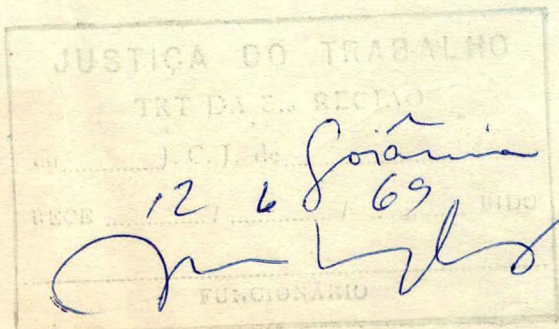 JUSTIÇA DO TRABALHO
TRT DA 3.ª REGIÃO
J. C. J. de Goiânia
RECE 12 / 6 / 69 BIDO
FUNCIONÁRIO